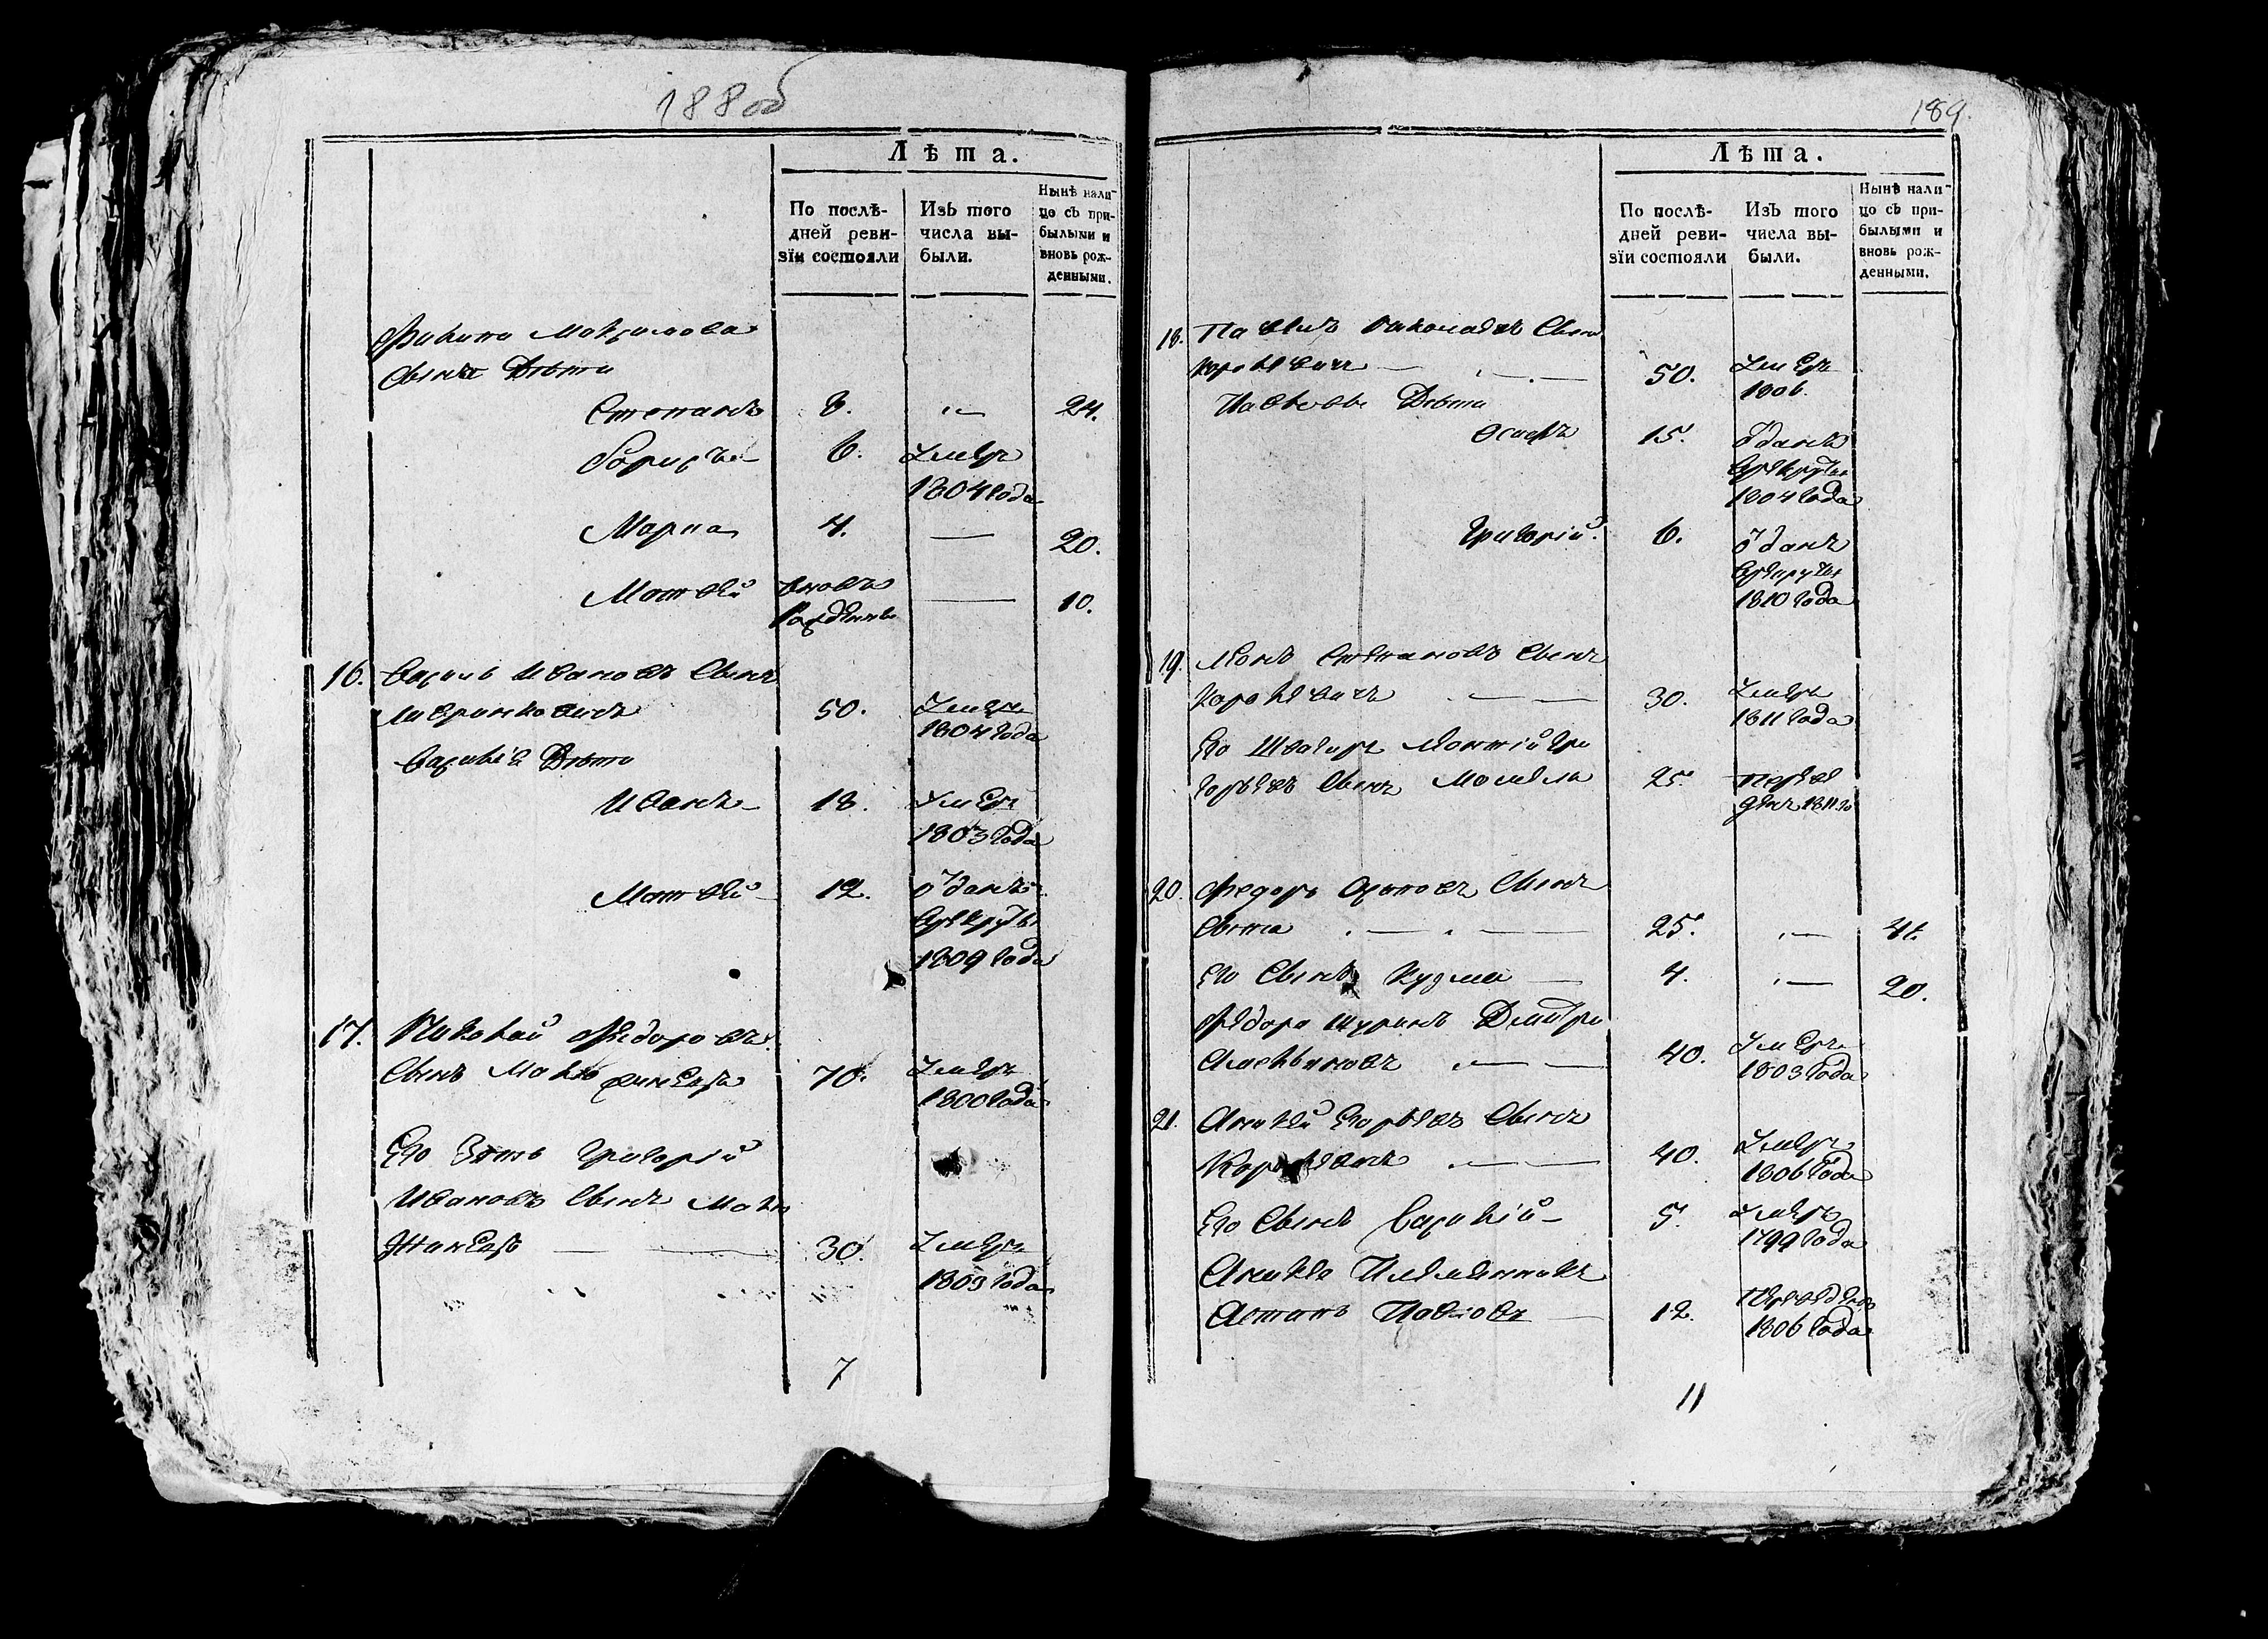 188 об
Лѣта.
По послѣ-
дней реви-
зїи состояли
Изъ того
числа вы-
были.
Нынѣ нали-
цо съ при-
былыми и
вновь рож-
денными.
Филипа Максимова
Сына Дѣти
Степанъ 8. 24.
Борисъ 6. Умеръ
1804 года
Марка 4. — 20.
Матвей вновь
Рожденъ — 10.
16. Василь Ивановъ Сынъ
50. Умеръ
1804 года
Василья Дѣти
Иванъ 18. Умеръ
1803 года
Матвей 12. Отданъ
Врекруты
1809 года
17. Николай Федоровъ
Сынъ 70. Умеръ
1800 года
Его Зять Григорій
Ивановъ Сынъ
30. Умеръ
1803 года
7
189.
Лѣта.
По послѣ-
дней реви-
зїи состояли
Изъ того
числа вы-
были.
Нынѣ нали-
цо съ при-
былыми и
вновь рож-
денными.
18. Павелъ Николаевъ Сынъ
Королевичъ — 50. Умеръ
1806.
Павловы Дѣти
Осипъ 15. Отданъ
Врекруты
1804 года
Григорій 6. Отданъ
Врекруты
1810 года
19. Леонъ Степановъ Сынъ
Королевичъ — 30. Умеръ
1811 года
Его Швагиръ Гри
горьевъ Сынъ 25. Переве
денъ 1811 го
20. Федоръ Сынъ
25. — 41.
Его Сынъ Кузма — 4. — 20.
Федора шуринъ Дмитри
Емельяновъ — 40. Умеръ
1803 года
21. Егорьевъ Сынъ
Королевичъ — 40. Умеръ
1806 года
Его Сынъ Василій 5. Умеръ
1799 года
Племянникъ
Павловъ — 12. Переведенъ
1806 года
11